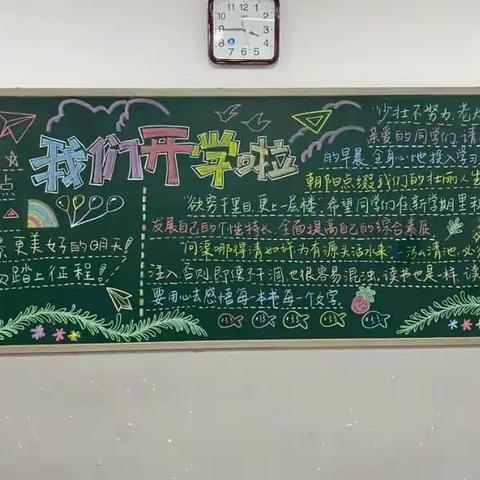 我们开学啦
点
更美好的明天!
踏上征程!
少壮不努力,老大
亲爱的同学们,请
的早晨,全身心地投入学习
朝阳点缀我们的壮丽人生
欲穷千里目,更上一层楼。希望同学们在新学期里积
发展自己的个性特长,全面提高自己的综合素质
问渠哪得清如许为有源头活水来,清池,必须
注入,否则,即便不涸也很容易混浊,读书也是一样,读
要用心去感悟每一本书每一个文字。